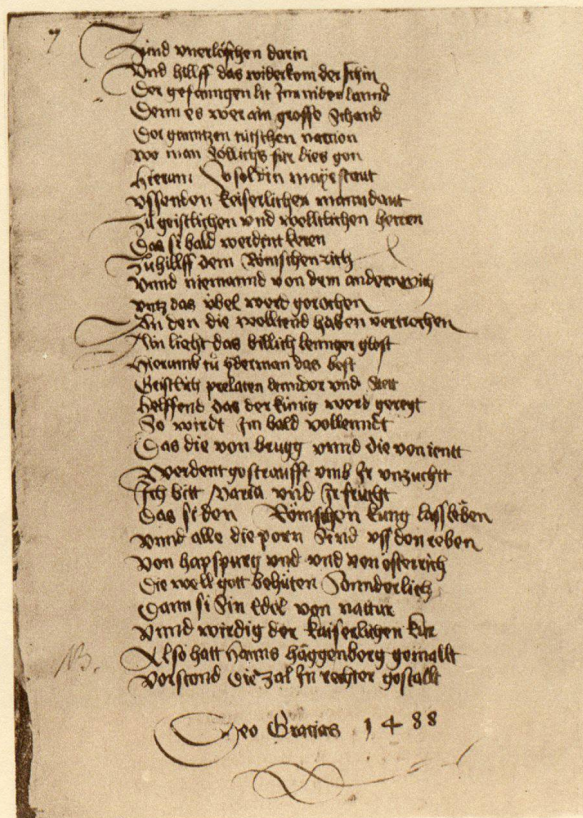 7
Sind vnerloschen darin
Vnd hillff das widerkom der schin
Der gefanngen lit Im niderlannd
Denn es wer ain grosse schand
Der gantzen tütschen nacion
wo man sollichs für dies gon
Hierum so sol din mayestaut
vssenden keiserlichen manndaut
Zu geistlichen vnd welltlichen herren
Das si bald werdent keren
Zu hillff dem Römschen rich
Vnnd niemannd von dem anndern wich
vntz das übel werd gerochen
An den die wolltend haben vertrochen
Ain liecht das billich lenger glest
Hierumb tü yderman das best
Geistlich prelaten lender vnd Stett
Helffend das der künig werd gerett
So wirdt Im bald vollenndt
Das die von brugg vnnd die von jentt
Werdent gestraufft vmb Ir vnzuchtt
Ich bitt Maria vnd Ir frucht
Das si den Römschen kung lass leben
vnnd alle die porn Sind vss den reben
von hapspurg vnd vnd von osterrich
Die well gott behüten Sonnderlich
Dann si Sin Edel von nattur
vnnd wirdig der kaiserlichen kur
Also hatt Hanns häggenberg gemallt
verstond die zal In rechter gestallt
NB.
Deo Gracias 1488